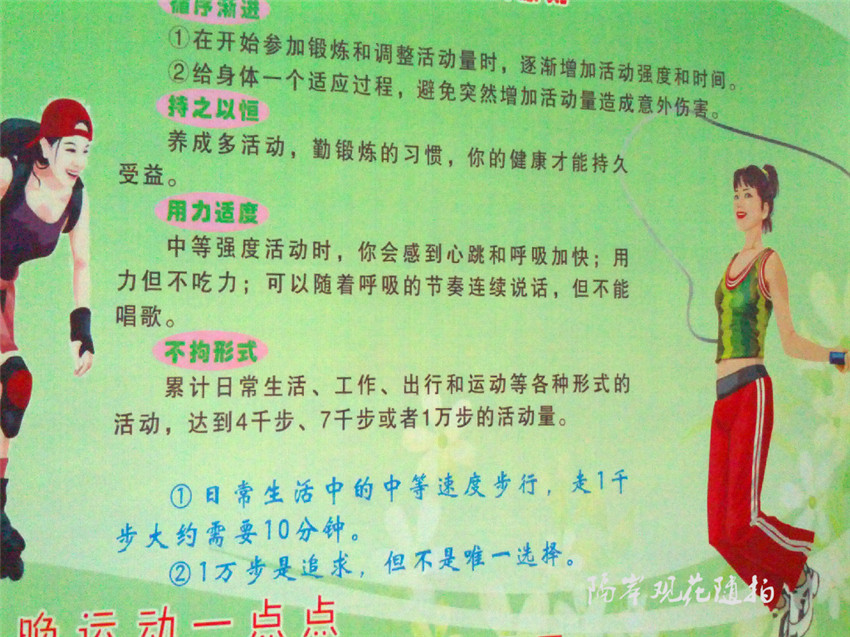 循序渐进
①在开始参加锻炼和调整活动量时，逐渐增加活动强度和时间。
②给身体一个适应过程，避免突然增加活动量造成意外伤害。
持之以恒
养成多活动，勤锻炼的习惯，你的健康才能持久
受益。
用力适度
中等强度活动时，你会感到心跳和呼吸加快；用
力但不吃力；可以随着呼吸的节奏连续说话，但不能
唱歌。
不拘形式
累计日常生活、工作、出行和运动等各种形式的
活动，达到4千步、7千步或者1万步的活动量。
①日常生活中的中等速度步行，走1千
步大约需要10分钟。
②1万步是追求，但不是唯一选择。
隔岸观花随拍
晚运动一点点